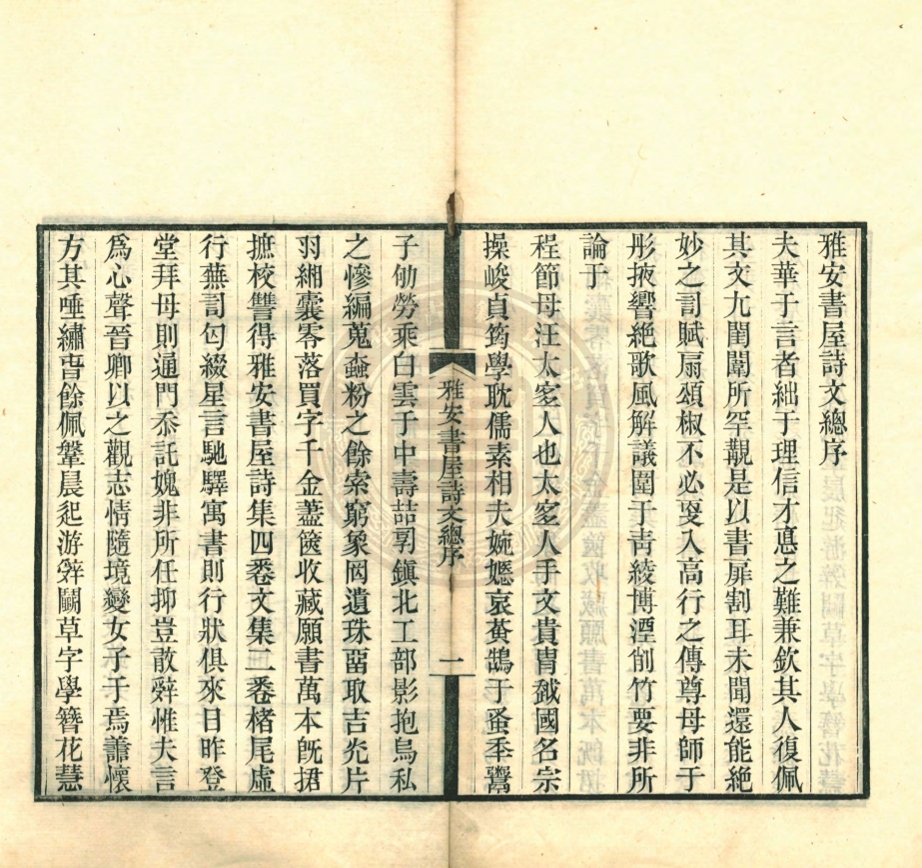 雅安書屋詩文總序
夫華于言者絀于理信才悳之難兼欽其人復佩
其文尢閨闈所罕覯是以書屝割耳未聞還能絶
妙之䛐賦扇頌椒不必㪅入高行之傳尊母師于
彤掖響絕歌風解議圍于靑綾博湮削竹要非所
論于
程節母汪太㝐人也太㝐人手文貴冑國名宗
操峻貞筠學耽儒素相夫婉嫕哀黃鵠于蚤秊鬻
子劬勞乘白雲于中壽喆孠鎭北工部影抱烏私
之慘編蒐蠧粉之餘索窮象罔遺珠取吉光片
羽緗囊零落買字千金藎篋收藏願書萬本旣捃
摭校讐得雅安書屋詩集四卷文集二卷楮尾虛
行蕪䛐匃綴星言馳驛寓書則行狀俱來日昨登
堂拜母則通門忝託媿非所任抑豈敢辤惟夫言
爲心聲晉卿以之觀志情隨境變女子于焉譣懷
方其唾繡餘佩鞶晨起游辤鬭草字學簪花慧
雅安書屋詩文總序
一